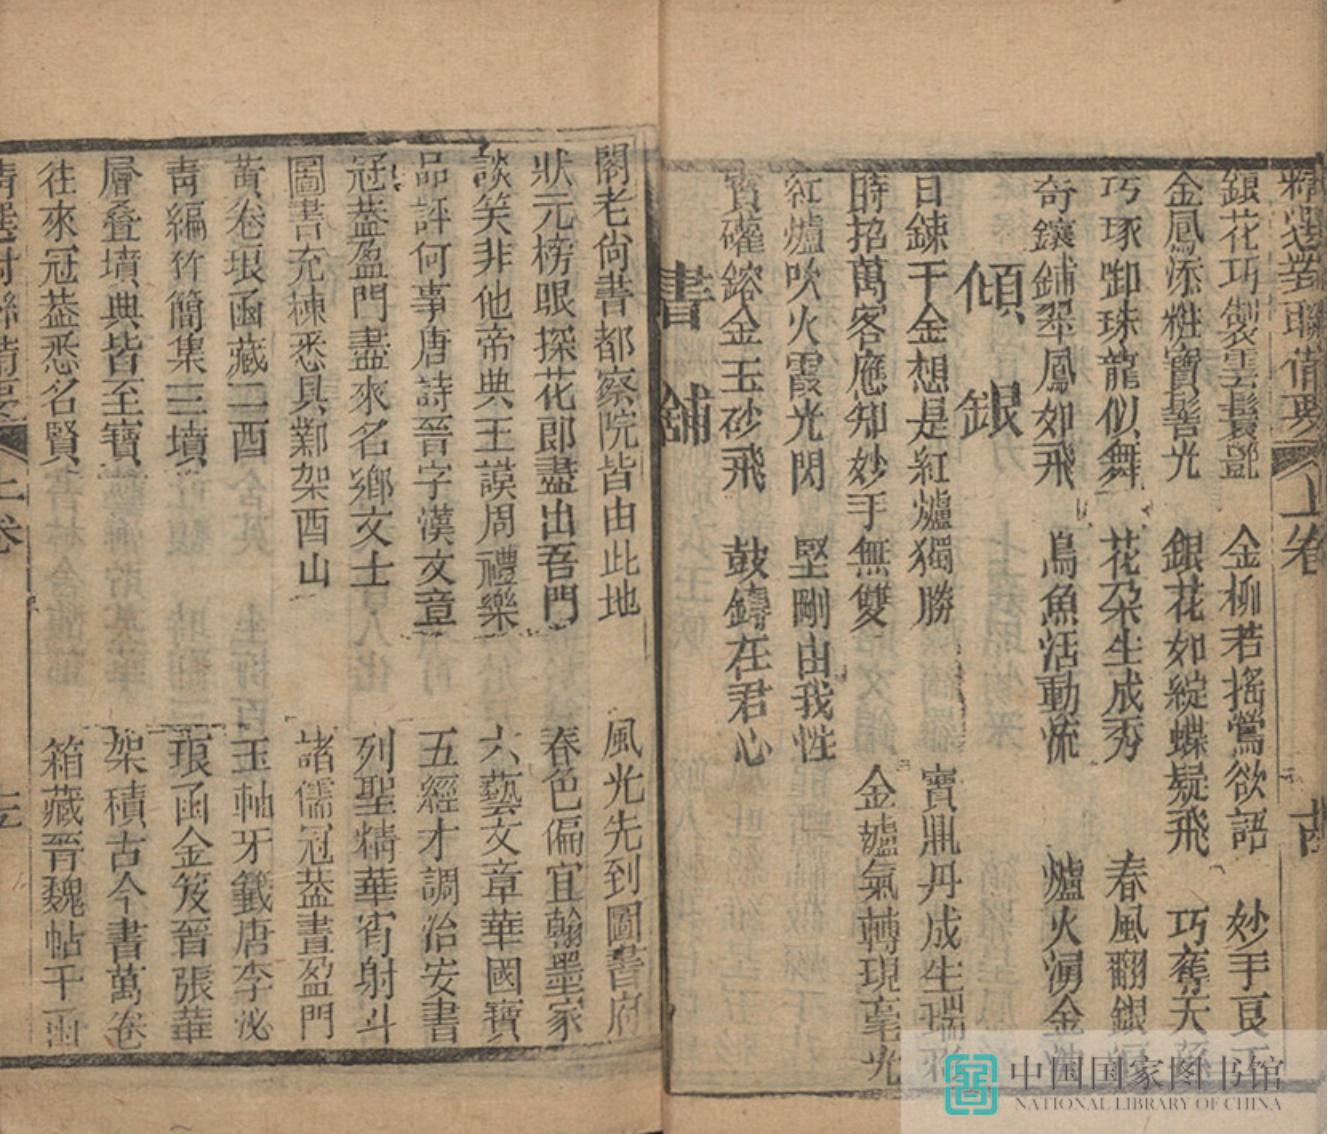 精選對聯備要 上卷
銀花巧製雲鬟艷 金柳若搖鶯欲語 妙手
金鳳添粧寶髻光 銀花如綻蝶疑飛 巧奪天
巧琢卸珠龍似舞 花朵生成秀 春風翻銀
奇鑲鋪翠鳳如飛 鳥魚活動流 爐火湧金
傾銀
日鍊千金想是紅爐獨勝 寶鼎丹成生瑞
時招萬客應知妙手無雙 金爐氣轉現毫光
紅爐吹火霞光閃 堅剛由我性
寶礶鎔金玉砂飛 鼓鑄在君心
書鋪
閣老尙書都察院皆由此地 風光先到圖書府
狀元榜眼探花郎盡出吾門 春色偏宜翰墨家
談笑非他帝典王謨周禮樂 六藝文章華國寶
品評何事唐詩晉字漢文章 五經才調治安書
冠葢盈門盡來名鄉文士 列聖精華宵射斗
圖書充棟悉具鄴架酉山 諸儒冠葢晝盈門
黃卷琅函藏二酉 玉軸牙籤唐李泌
靑編竹簡集三墳 琅函金笈晉張華
層叠墳典皆至寶 架積古今書萬卷
往來冠葢悉名賢 箱藏晉魏帖千
精選對聯備要 上卷
中国国家图书馆
NATIONAL LIBRARY OF CHINA